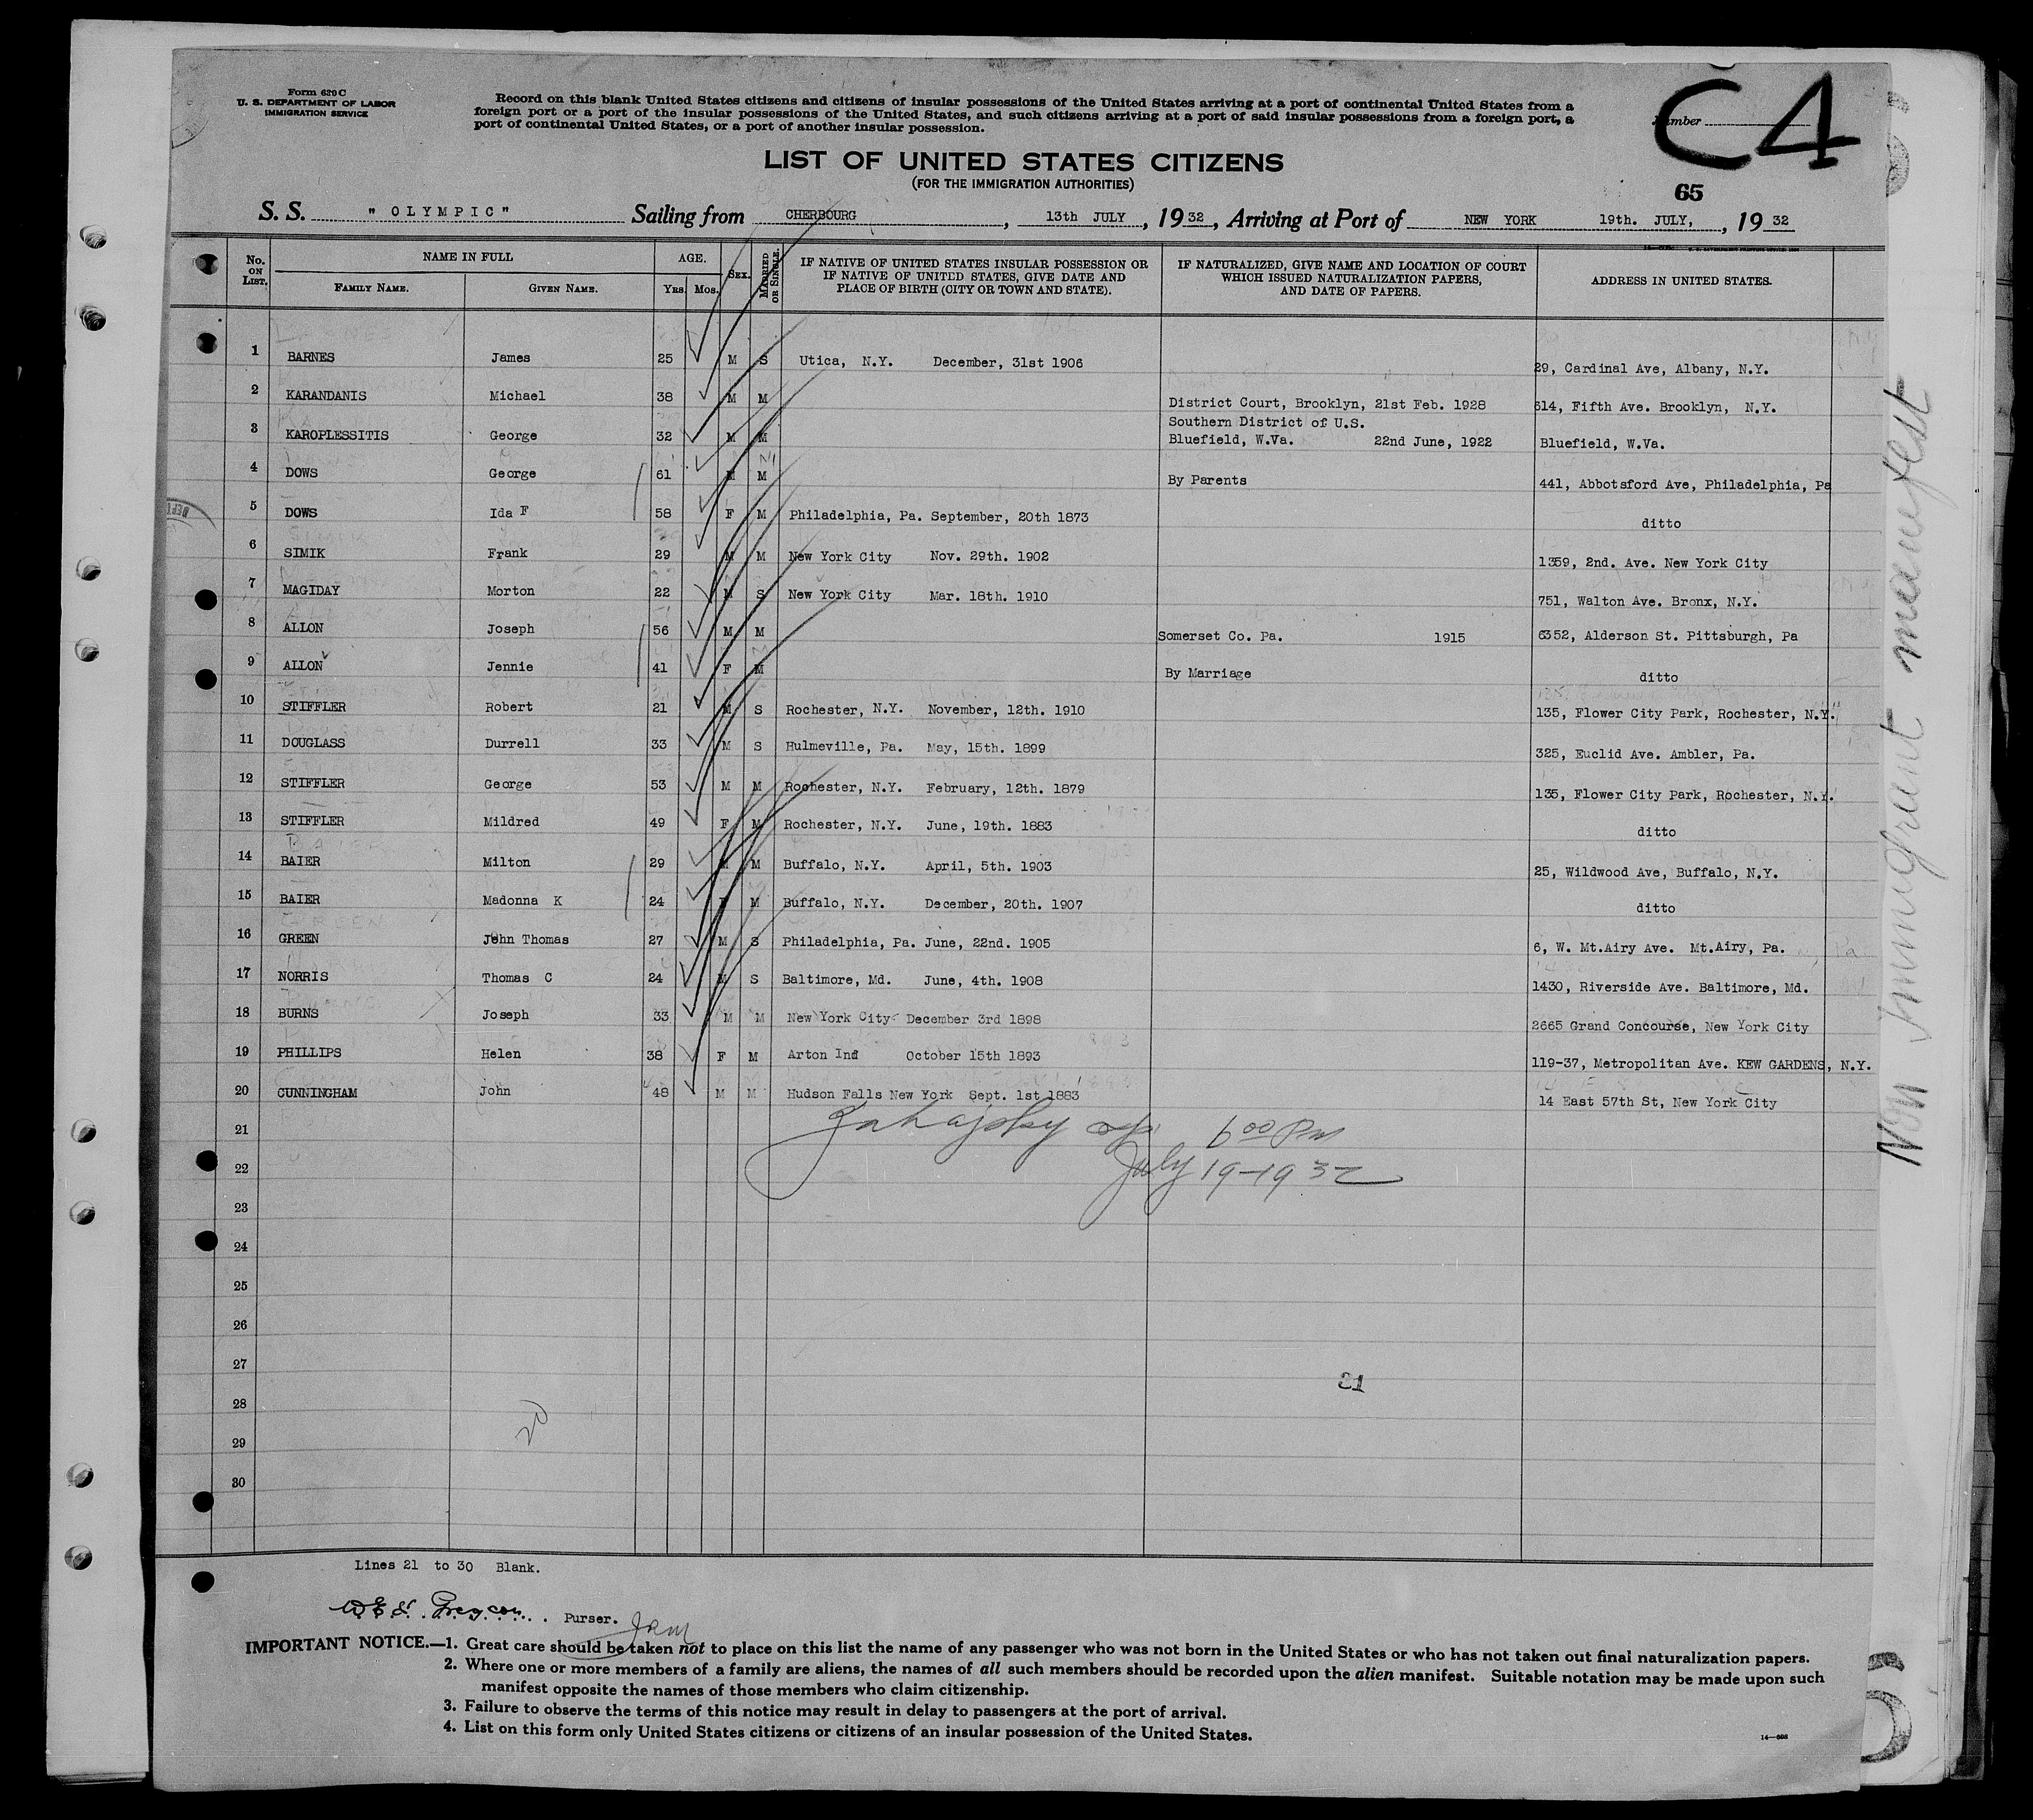 Form 630 C
U. S. DEPARTMENT OF LABOR
IMMIGRATION SERVICE
Record on this blank United States citizens and citizens of insular possessions of the United States arriving at a port of continental United States from a
foreign port or a port of the insular possessions of the United States, and such citizens arriving at a port of said insular possessions from a foreign port, a
port of continental United States, or a port of another insular possession.
Number
C4
LIST OF UNITED STATES CITIZENS
(FOR THE IMMIGRATION AUTHORITIES)
65
S. S. "OLYMPIC" Sailing from CHERBOURG, 13th JULY, 1932, Arriving at Port of NEW YORK 19th. JULY, 1932
No. ON LIST. NAME IN FULL FAMILY NAME. GIVEN NAME. AGE. Yrs. Mos. SEX. MARRIED OR SINGLE. IF NATIVE OF UNITED STATES INSULAR POSSESSION OR IF NATIVE OF UNITED STATES, GIVE DATE AND PLACE OF BIRTH (CITY OR TOWN AND STATE). IF NATURALIZED, GIVE NAME AND LOCATION OF COURT WHICH ISSUED NATURALIZATION PAPERS, AND DATE OF PAPERS. ADDRESS IN UNITED STATES.
1 BARNES James 25 M S Utica, N.Y. December, 31st 1906 29, Cardinal Ave, Albany, N.Y.
2 KARANDANIS Michael 38 M M District Court, Brooklyn, 21st Feb. 1928 614, Fifth Ave. Brooklyn, N.Y.
3 KAROPLESSITIS George 32 M M Southern District of U.S. Bluefield, W.Va. 22nd June, 1922 Bluefield, W.Va.
4 DOWS George 61 M M By Parents 441, Abbotsford Ave, Philadelphia, Pa
5 DOWS Ida F 58 F M Philadelphia, Pa. September, 20th 1873 ditto
6 SIMIK Frank 29 M M New York City Nov. 29th. 1902 1359, 2nd. Ave. New York City
7 MAGIDAY Morton 22 M S New York City Mar. 18th. 1910 751, Walton Ave. Bronx, N.Y.
8 ALLON Joseph 56 M M Somerset Co. Pa. 1915 6352, Alderson St. Pittsburgh, Pa
9 ALLON Jennie 41 F M By Marriage ditto
10 STIFFLER Robert 21 M S Rochester, N.Y. November, 12th. 1910 135, Flower City Park, Rochester, N.Y.
11 DOUGLASS Durrell 33 M S Hulmeville, Pa. May, 15th. 1899 325, Euclid Ave. Ambler, Pa.
12 STIFFLER George 53 M M Rochester, N.Y. February, 12th. 1879 135, Flower City Park, Rochester, N.Y.
13 STIFFLER Mildred 49 F M Rochester, N.Y. June, 19th. 1883 ditto
14 BAIER Milton 29 M M Buffalo, N.Y. April, 5th. 1903 25, Wildwood Ave, Buffalo, N.Y.
15 BAIER Madonna K 24 F M Buffalo, N.Y. December, 20th. 1907 ditto
16 GREEN John Thomas 27 M S Philadelphia, Pa. June, 22nd. 1905 6, W. Mt.Airy Ave. Mt.Airy, Pa.
17 NORRIS Thomas C 24 M S Baltimore, Md. June, 4th. 1908 1430, Riverside Ave. Baltimore, Md.
18 BURNS Joseph 33 M M New York City December 3rd 1898 2665 Grand Concourse, New York City
19 PHILLIPS Helen 38 F M Arton Ind October 15th 1893 119-37, Metropolitan Ave. KEW GARDENS, N.Y.
20 CUNNINGHAM John 48 M M Hudson Falls New York Sept. 1st 1883 14 East 57th St, New York City
21 6 00 Pm
22 July 19-1932
23
24
25
26
27
31
28
20
29
30
Lines 21 to 30 Blank.
Purser.
IMPORTANT NOTICE.—1. Great care should be taken not to place on this list the name of any passenger who was not born in the United States or who has not taken out final naturalization papers.
2. Where one or more members of a family are aliens, the names of all such members should be recorded upon the alien manifest. Suitable notation may be made upon such
manifest opposite the names of those members who claim citizenship.
3. Failure to observe the terms of this notice may result in delay to passengers at the port of arrival.
4. List on this form only United States citizens or citizens of an insular possession of the United States.
Non Immigrant manifest